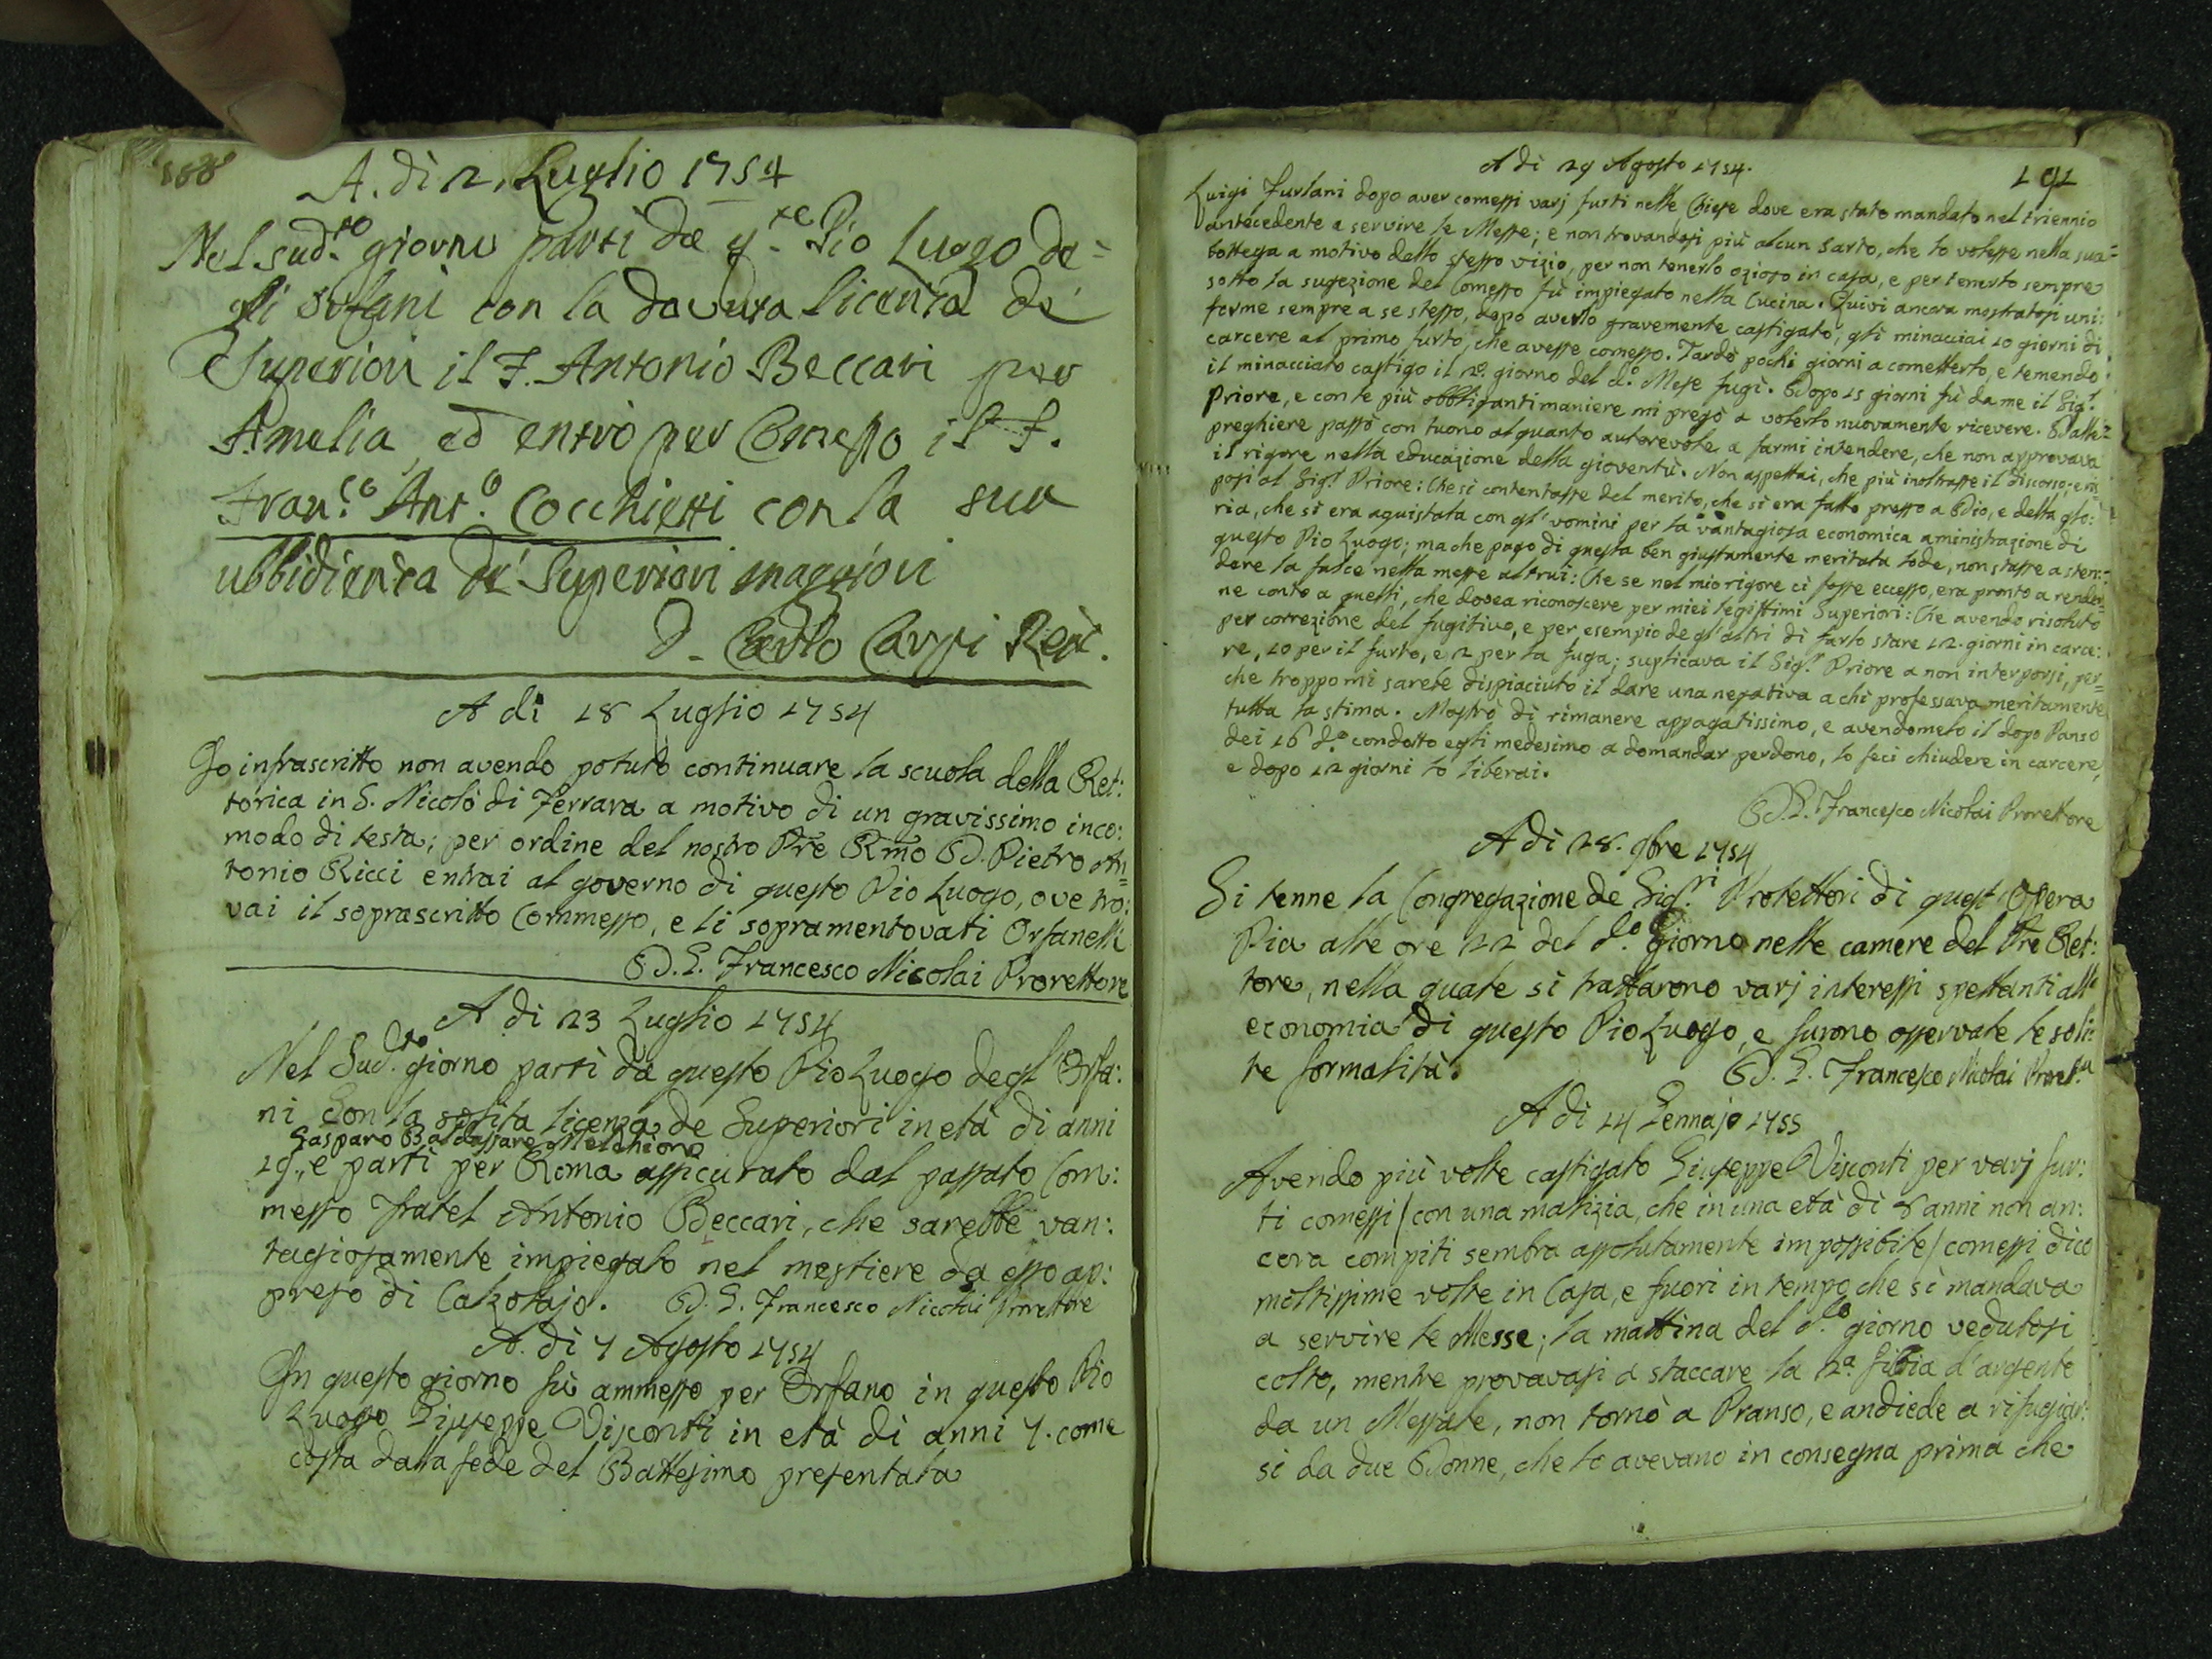 188
A. dì 2, Luglio 1754
Nel sud.to giorno partì da q.te Pio Luogo de=
gli Orfani con la dovuta licenza de'
Superiori il F. Antonio Beccari per
Amelia, ed entrò per Comesso il F.
Fran.co Ant.o Cocchietti con la sua
ubbidienza de' Superiori maggiori
D. Carlo Carpi Ret.
A di 18 Luglio 1754
Io infrascritto non avendo potuto continuare la scuola della Ret:
torica in S. Nicolò di Ferrara a motivo di un gravissimo inco:
modo di testa; per ordine del nostro Pre Rmo D. Pietro An=
tonio Ricci entrai al governo di questo Pio Luogo, ove tro:
vai il soprascritto Commesso, e li sopramentovati Orfanelli
D. G. Francesco Nicolai Prorettore
A di 23 Luglio 1754
Nel Sud.to giorno partì da questo Pio Luogo degl'Orfa:
ni con la solita licenza de Superiori in età di anni
Gasparo Baldassare Melchiore
19., e partì per Roma assicurato dal passato Com:
messo Fratel Antonio Beccari, che sarebbe van:
tagiosamente impiegato nel mestiere da esso ap:
preso di Calzolajo. D. G. Francesco Nicolai Prorettore
A. di 7 Agosto 1754
In questo giorno fù ammesso per Orfano in questo Pio
Luogo Giuseppe Visconti in età di anni 7. come
costa dalla fede del Battesimo presentata
A di 29 Agosto 1754.
191
Luigi Furlani dopo aver comessi varj furti nelle Chiese dove era stato mandato nel triennio
antecedente a servire le Messe; e non trovandosi più alcun sarto, che lo volesse nella sua=
bottega a motivo dello stesso vizio, per non tenerlo ozioso in casa, e per tenerlo sempre
sotto la sugezione del Comesso fù impiegato nella Cucina. Quivi ancora mostratosi uni:
forme sempre a se stesso, dopo averlo gravemente castigato, gli minacciai 10 giorni di
carcere al primo furto, che avesse comesso. Tardò pochi giorni a cometterlo, e temendo
il minacciato castigo il 2.o giorno del d.o Mese fugì. Dopo 15 giorni fù da me il Sig.r
Priore, e con le più obbliganti maniere mi pregò a volerlo nuovamente ricevere. Dalle=
preghiere passò con tuono alquanto autorevole a farmi intendere, che non approvava
il rigore nella educazione della gioventù. Non aspettai, che più inoltrasse il discorso; e ris
posi al Sig.r Priore: Che si contentasse del merito, che si era fatto presso a Dio, e della glo:
ria, che si era aquistata con gl'uomini per la vantagiosa economica aministrazione di
questo Pio Luogo; ma che pago di questa ben giustamente meritata lode, non stasse a sten:
dere la falce nella messe altrui: Che se nel mio rigore ci fosse eccesso, era pronto a render=
ne conto a quelli, che dovea riconoscere per miei legittimi Superiori: Che avendo risoluto
per correzione del fugitivo, e per esempio degl'altri di farlo stare 12. giorni in carce:
re, 10 per il furto, e 2 per la fuga; suplicava il Sig.r Priore a non interporsi, per=
che troppo mi sarebe dispiaciuto il dare una negativa a chi professava meritamente
tutta la stima. Mostrò di rimanere appagatissimo, e avendomelo il dopo Panso
dei 16 d.o condotto egli medesimo a domandar perdono, lo feci chiudere in carcere,
e dopo 12 giorni lo liberai.
D. G. Francesco Nicolai Prorettore
A di 28. 9bre 1754
Si tenne la Congregazione de Sig.ri Protettori di quest'Opera
Pia alle ore 22 del d.o Giorno nelle camere del Pre Ret:
tore, nella quale si trattarono varj interessi spettanti all'
economia di questo Pio Luogo, e furono osservate le soli:
te formalità.
D. G. Francesco Nicolai Proret.re
A di 14 Gennajo 1755
Avendo più volte castigato Giuseppe Visconti per varj fur:
ti comessi / con una malizia, che in una età di 8 anni non an:
cora compiti sembra assolutamente impossibile / comessi dico
moltissime volte in Casa, e fuori in tempo che si mandava
a servire le Messe; la mattina del d.o giorno vedutosi
colto, mentre provavasi a staccare la 2.a fibia d'argento
da un Messale, non tornò a Pranso, e andiede a rifugiar:
si da due Donne, che lo avevano in consegna prima che